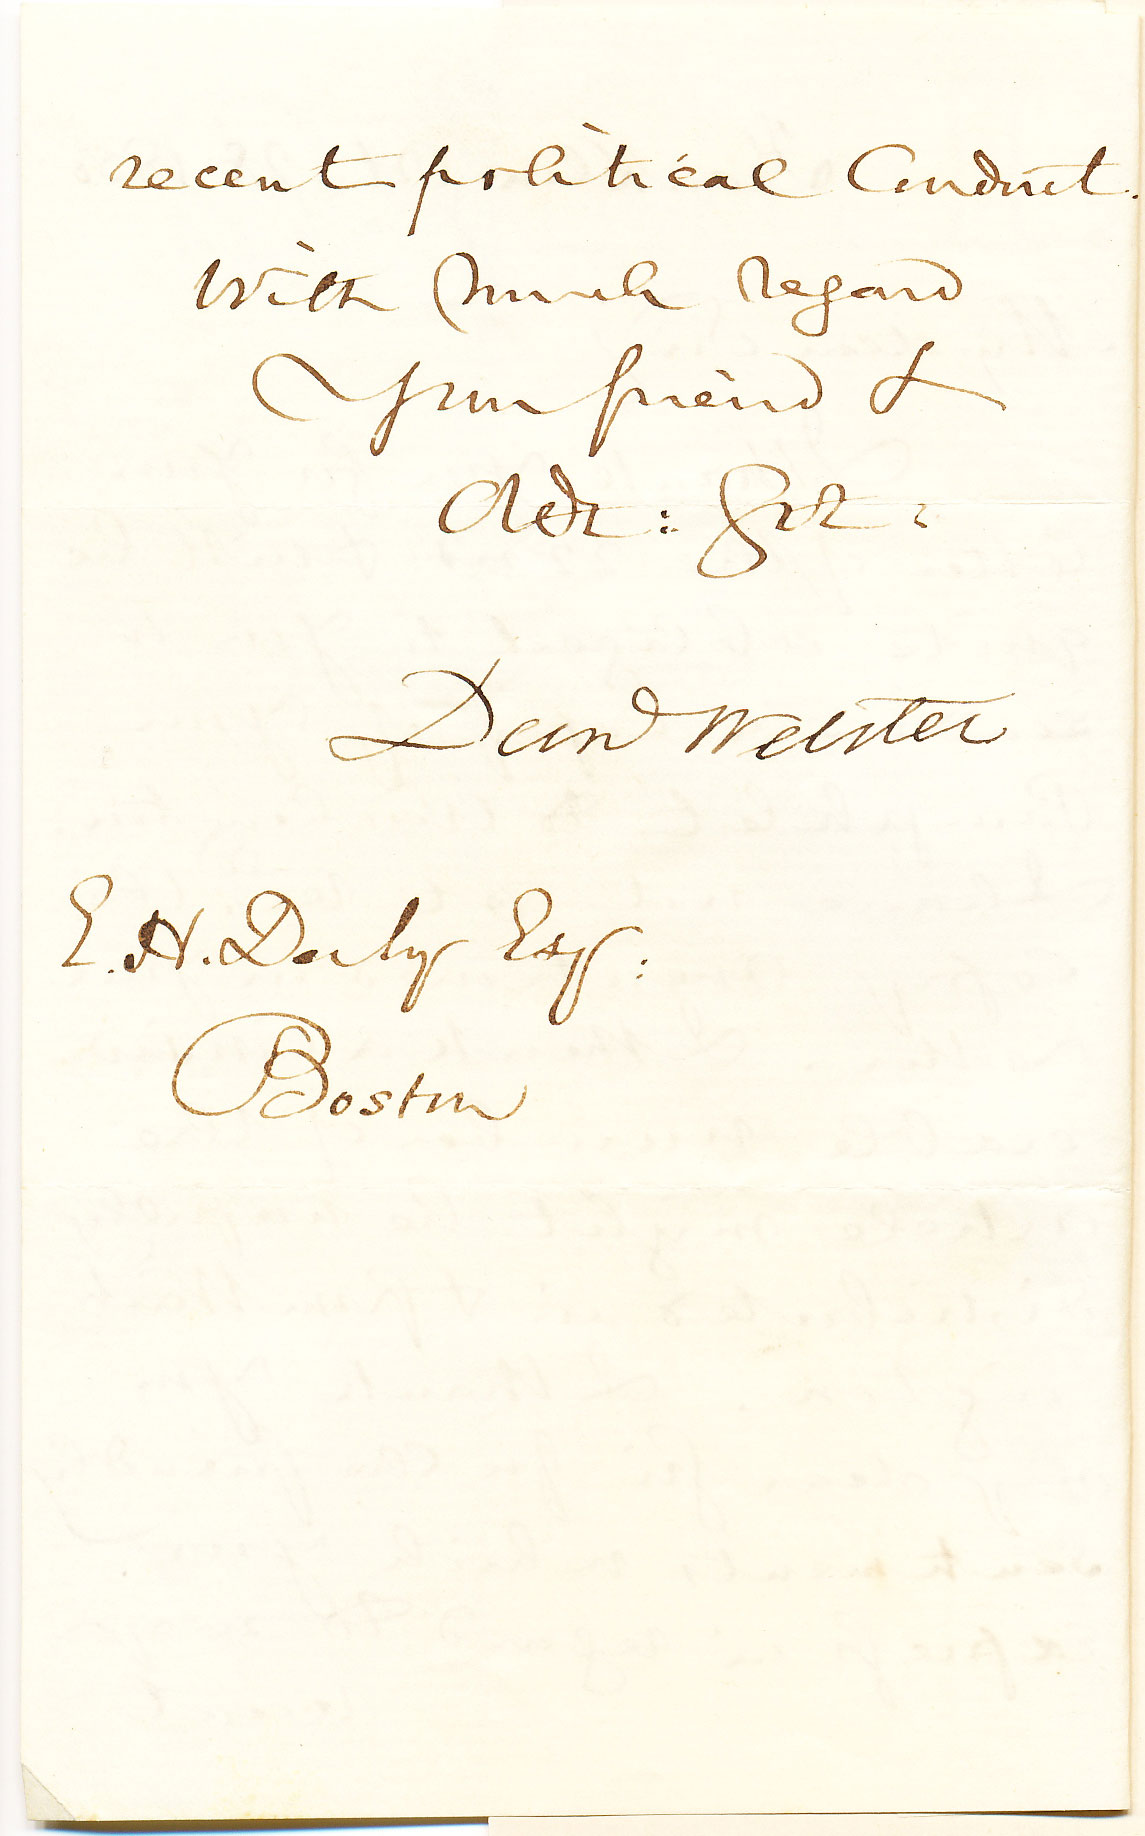 recent political Conduct.
With much regard
Your friend &
Obdt: Svt:
Danl Webster
E. H. Derby Esq:
Boston